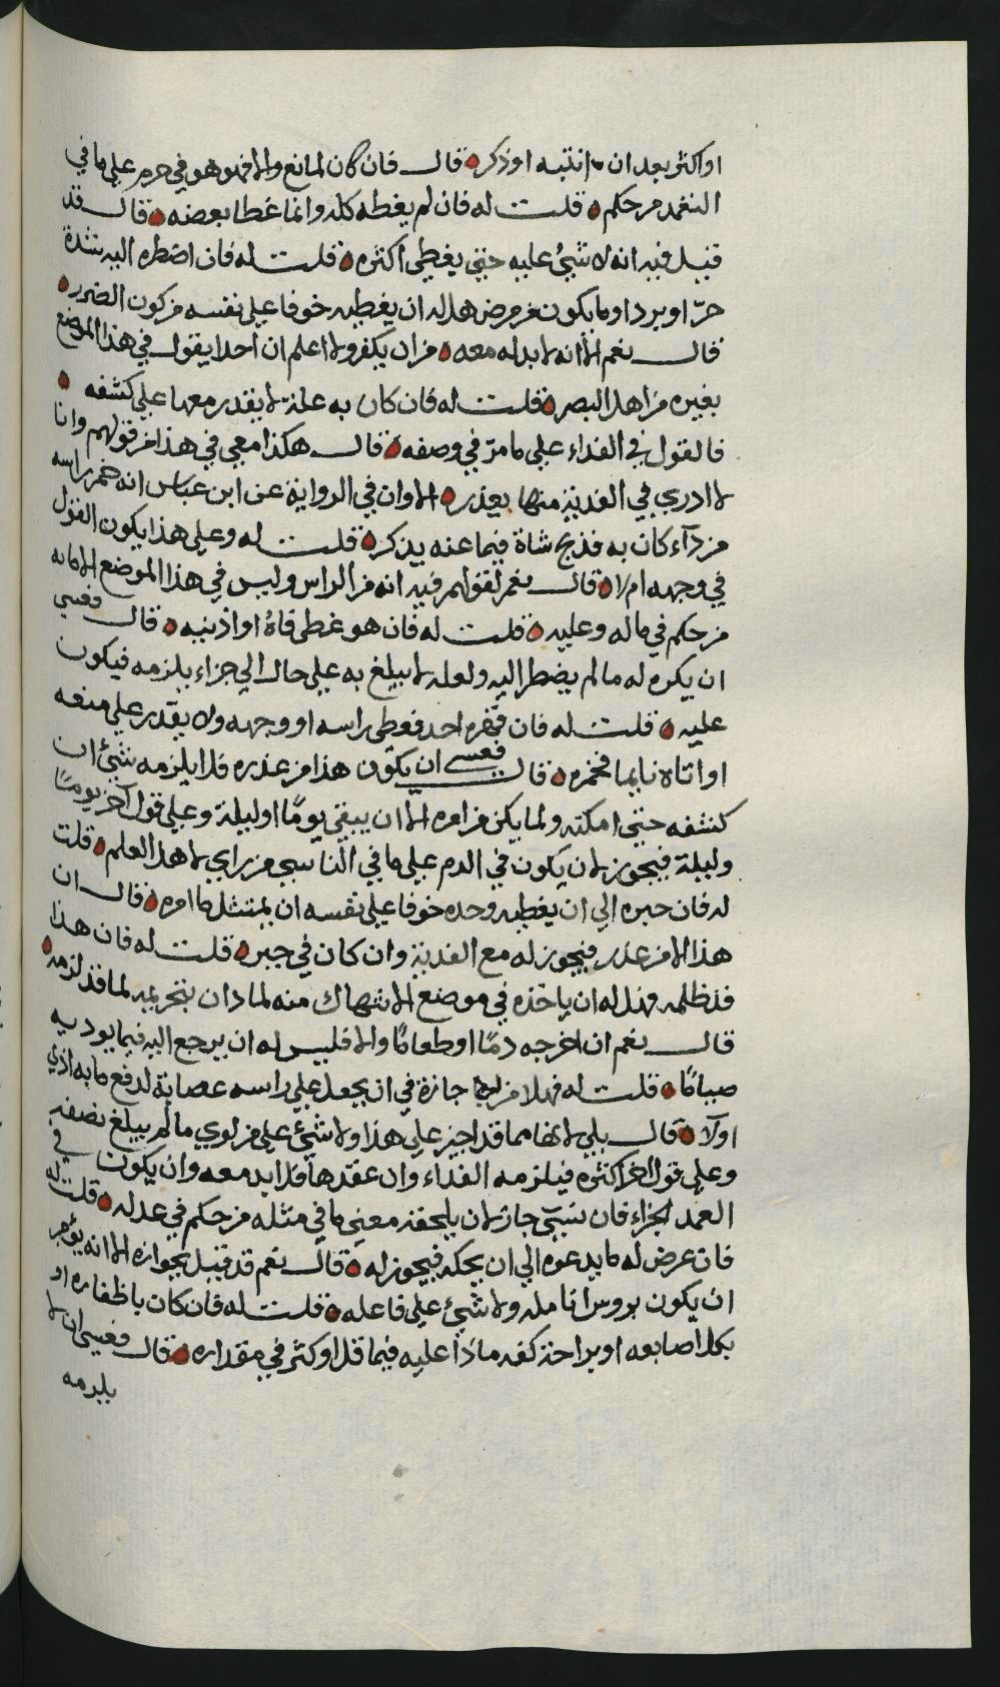 او اكثر بعد ان انتبه او ذكر قال فان كان لمانع والا فهو هو في حرم علي ما في
التغمد من حكم قلت له فان لم يغطه كله وانما غطا بعضه قال قد
قيل فيه انه لا شئ عليه حتي يغطي اكثره قلت له فان اضطره اليه شدة
حرّ او برد او ما يكون من مرض هل له ان يغطيه خوفا علي نفسه من كون الضرر
قال نعم الا انه لا بد له معه من ان يكفر ولا اعلم ان احدا يقول في هذا الموضع
بغيره من اهل البصر قلت له فان كان به علة لا يقدر معها علي كشفه
فالقول في الفداء علي ما مرّ في وصفه قال هكذا معي في هذا من قولهم وانا
لا ادري في الفدية منها بعذر الا وان في الرواية عن ابن عباس انه خمر راسه
من دآء كان به فذبح شاة فيما عنه يذكر قلت له وعلي هذا يكون القول
في وجهه ام لا قال نعم لقولهم فيه انه من الراس وليس في هذا الموضع الا ما له
من حكم في ما له وعليه قلت له فان هو غطي قاه او اذنيه قال فعسي
ان يكره له ما لم يضطر اليه ولعله لا يبلغ به علي حال الي جزاء يلزمه فيكون
عليه قلت له فان قهره احد فغطي راسه او وجهه ولا يقدر علي منعه
او اتاه نايما فخمره قال فعسي ان يكون هذا من عذره فلا يلزمه شئ ان
كشفه حتي امكنه ولما يكن من امره الا ان يبقي يومًا او ليلة وعلي قول اخر يومًا
وليلة فيجوز لان يكون في الدم علي ما في الناسي من راي لاهل العلم قلت
له فان جبره الي ان يغطيه وحده خوفا علي نفسه ان يمتثل ما امره قال ان
هذا لامن عذر فيجوز له مع الفدية وان كان في جبر قلت له فان هذا
قد ظلمه فهل له ان ياخذه في موضع الانتهاك منه لما دان بتحريمه لما قد لزمه
قال نعم ان اخرجه دمًا او طعامًا والا فليس له ان يرجع اليه فيما يوديه
صيامًا قلت له فهلا من اجازة في ان يجعل علي راسه عصابة لدفع ما به اذي
اولا قال بلي لانها مما قد اجيز علي هذا ولا شئ علي من لوي ما لم يبلغ نصفه
وعلي قول اخر اكثره فيلزمه الفداء وان عقدها فلا بد معه وان يكون في
العمد الجزاء فان نسي جاز لان يلحقه معني ما في مثله من حكم في عدله قلت له
فان عرض له ما يدعوه الي ان يحكه فيجوز له قال نعم قد قيل بجوازه الا انه يؤمر
ان يكون بروس انامله ولا شئ علي فاعله قلت له فان كان باظفاره او
بكل اصابعه او براحة كفه ماذا عليه فيما قل او كثر في مقداره قال فعسي ان لا
يلزمه